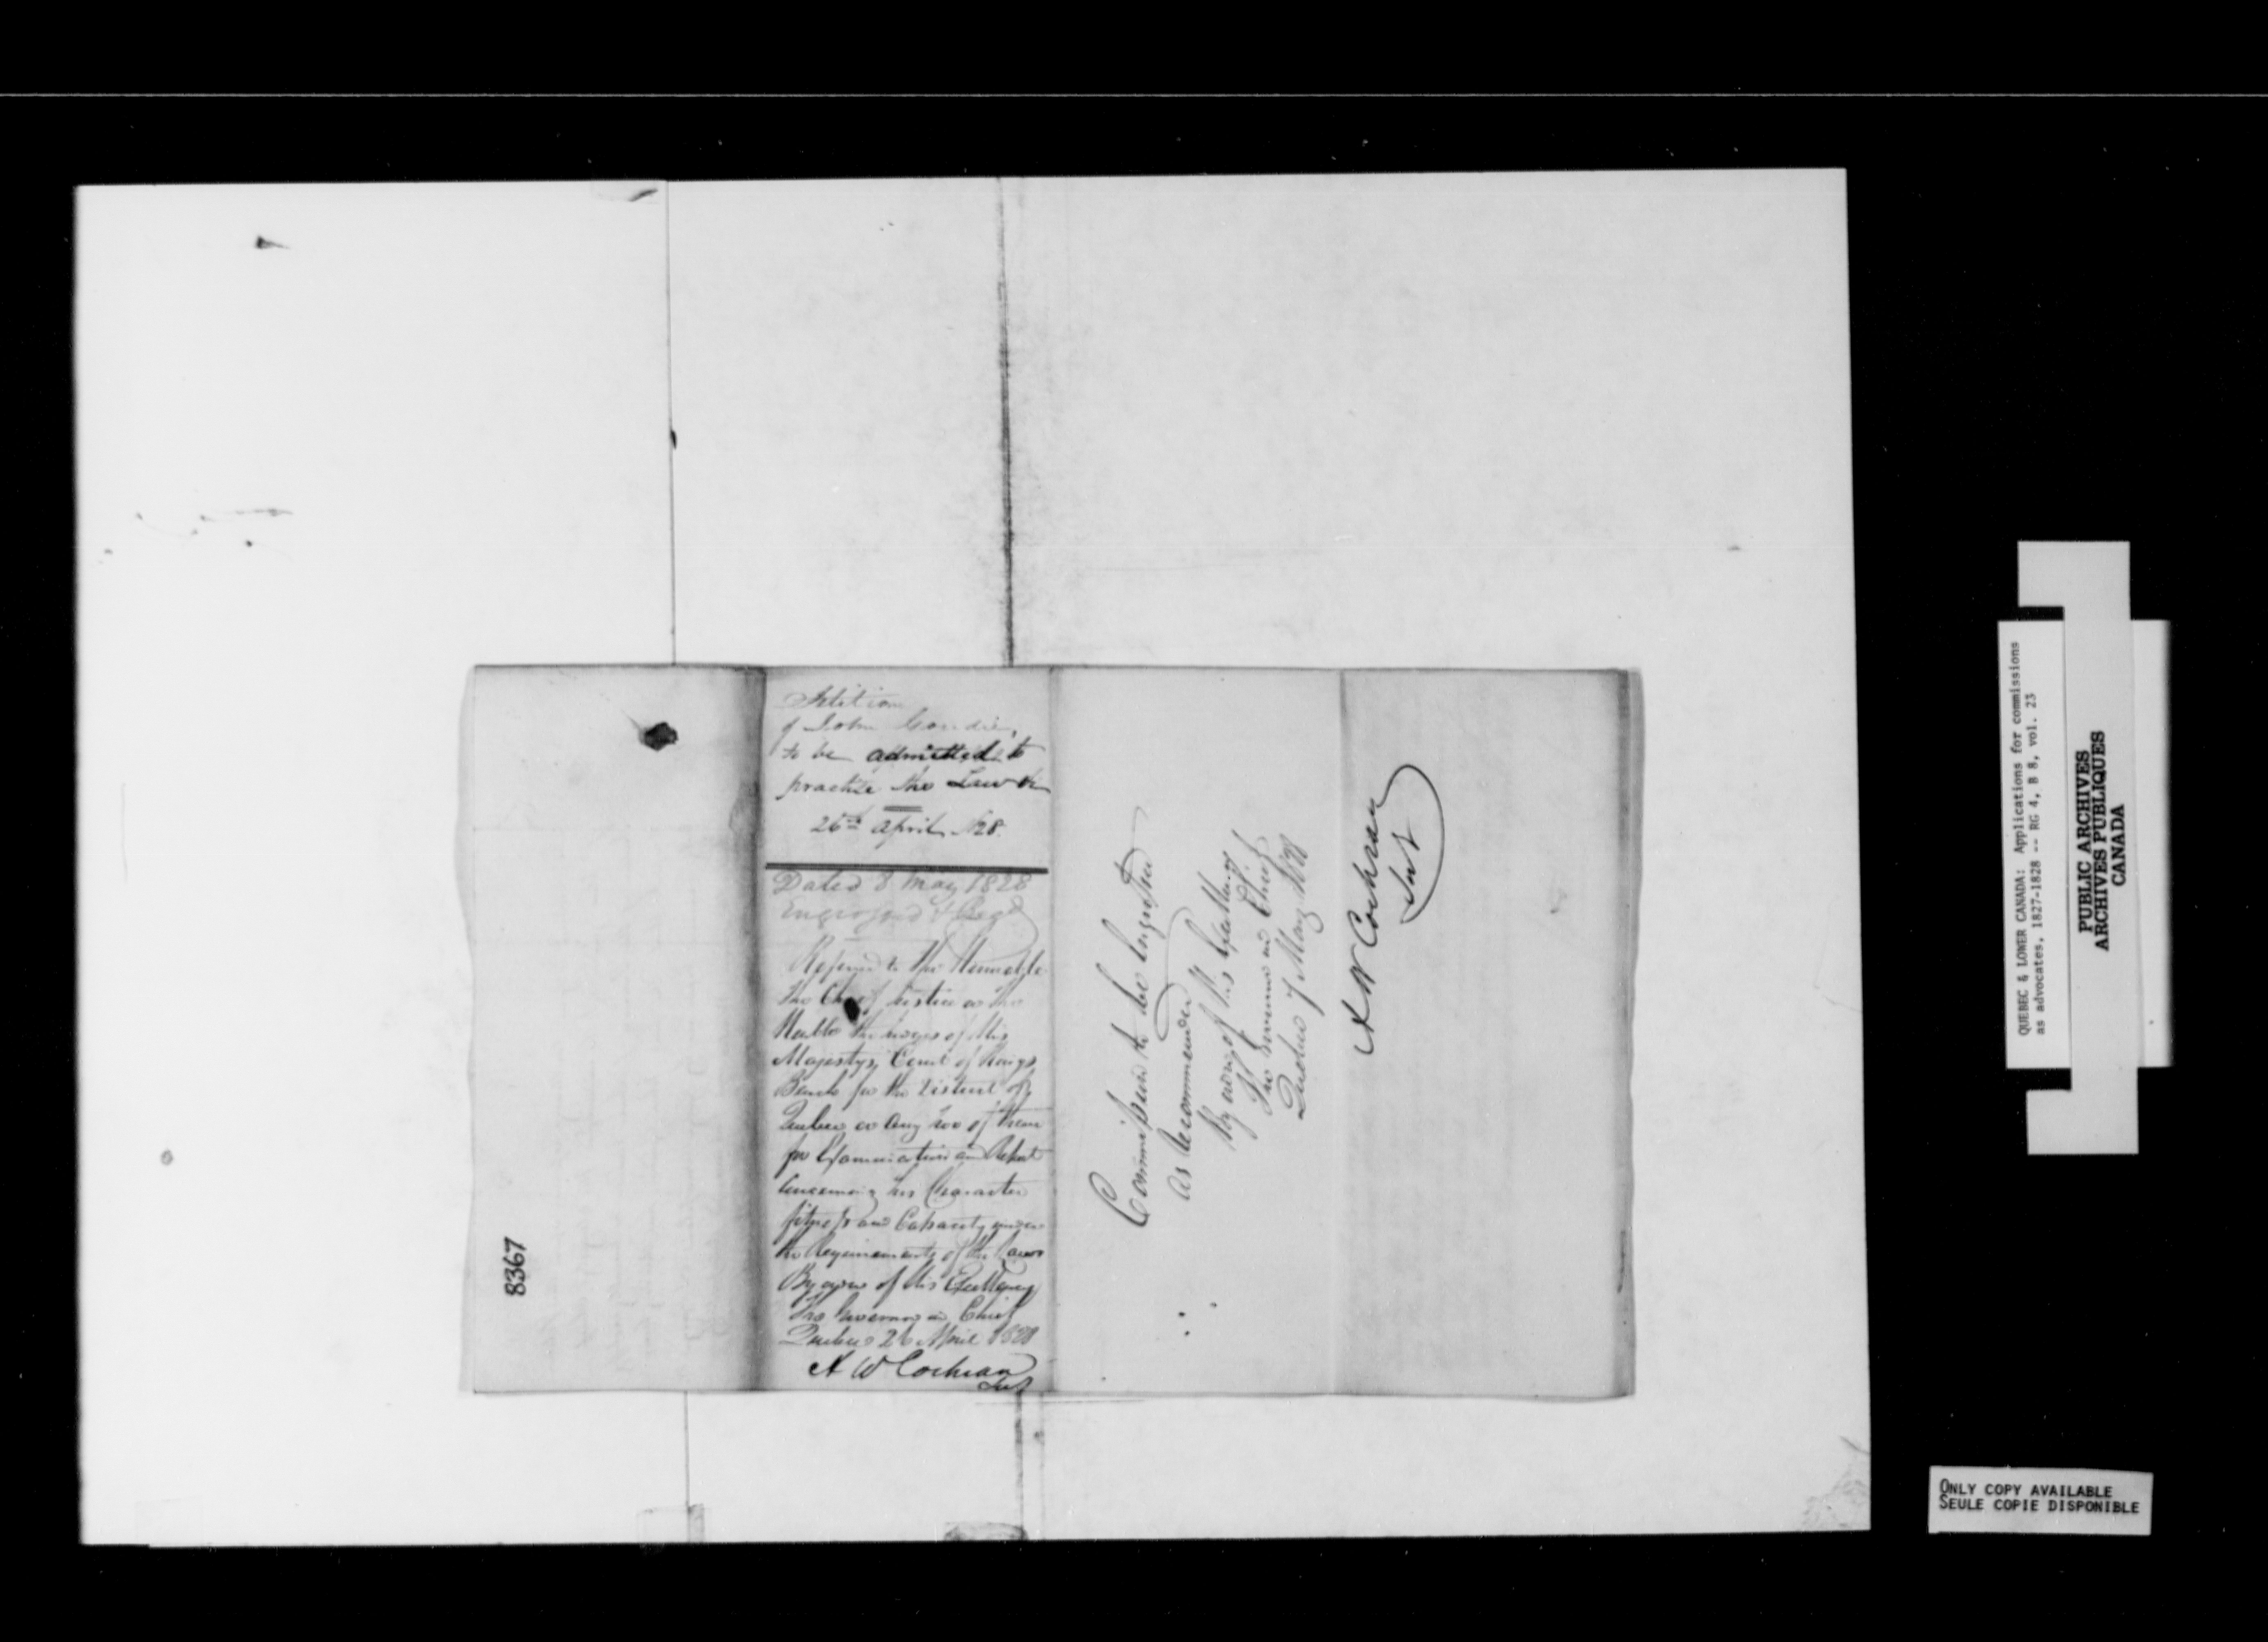 Petition
of John Goudie,
to be admitted to
practice the Law &c
26th April 1828.
Dated 8 May 1828
Engrossed & Regd
Referred to the Honorable
the Chief Justice or the
Honble the Judges of His
Majestys Court of Kings
Bench for the District of
Quebec or any two of them
for Examination and Report
Concerning his Character
fitness and Capacity under
the requirements of the Laws
By order of His Excellency
The Governor in Chief
Quebec 26 April 1828
A W Cochran
Secy
8367
Commission to be Engrossed
as recommended
By order of His Excellency
The Governor in Chief
Quebec 7 May 1828
A W Cochran
Secy
QUEBEC & LOWER CANADA: Applications for commissions
as advocates, 1827-1828 -- RG 4, B 8, vol. 23
PUBLIC ARCHIVES
ARCHIVES PUBLIQUES
CANADA
ONLY COPY AVAILABLE
SEULE COPIE DISPONIBLE